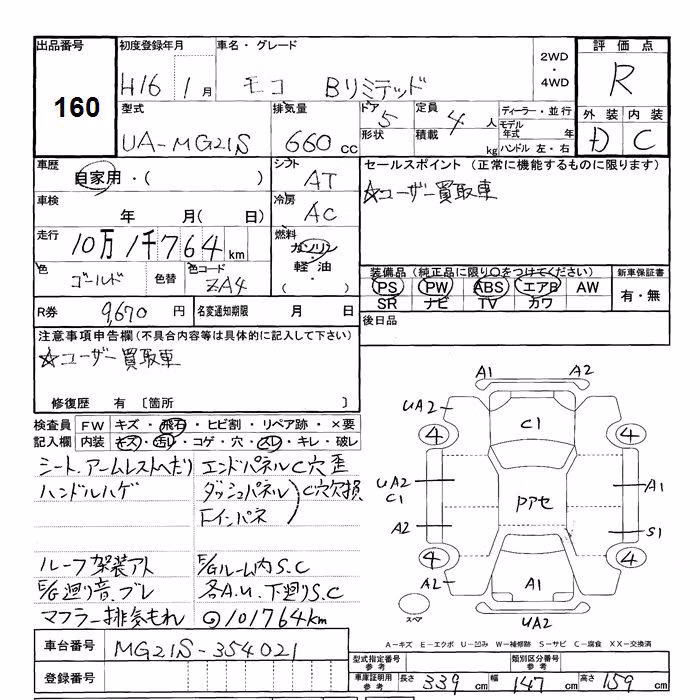 出品番号 160
初度登録年月 H16年 1月
車名・グレード モコ Bリミテッド
2WD・4WD
評価点 R
型式 UA-MG21S
排気量 660cc
ドア 5
形状
定員 4人
積載 kg
ディーラー・並行
モデル年式 年
ハンドル 左・右
外装 D
内装 C
車歴 自家用・( )
シフト AT
セールスポイント (正常に機能するものに限ります)
☆ユーザー買取車
車検 年 月( 日)
冷房 AC
走行 10万1千764km
燃料 ガソリン・軽油・( )
色 ゴールド
色替
色コード ZA4
装備品(純正品に限り○をつけてください)
新車保証書
PS PW ABS エアB AW
有・無
SR ナビ TV カワ
R券 9,670円
名変通知期限 月 日
後日品
注意事項申告欄(不具合内容等は具体的に記入して下さい)
☆ユーザー買取車
修復歴 有 〔箇所 〕
検査員記入欄
FW キズ・飛石・ヒビ割・リペア跡・×要
内装 キズ・汚レ・コゲ・穴・スレ・キレ・破レ
シート、アームレストへたり
エンドパネルC穴歪
ハンドルハゲ
ダッシュパネル
Fインパネ
C穴欠損
ルーフ架装アト
E/Gルーム内S.C
E/G廻り音、ブレ
各A.U.下廻りS.C
マフラー排気もれ
◎101764km
A1 A2
UA2
C1
4 4
UA2
C1
Pアセ
A1
A2
S1
4 4
A2
A1
スペア
UA2
A-キズ E-エクボ U-凹み W-補修跡 S-サビ C-腐食 XX-交換済
車台番号 MG21S-354021
登録番号
型式指定番号 参考
類別区分番号 参考
車庫証明用 参考
長さ 339cm
幅 147cm
高さ 159cm